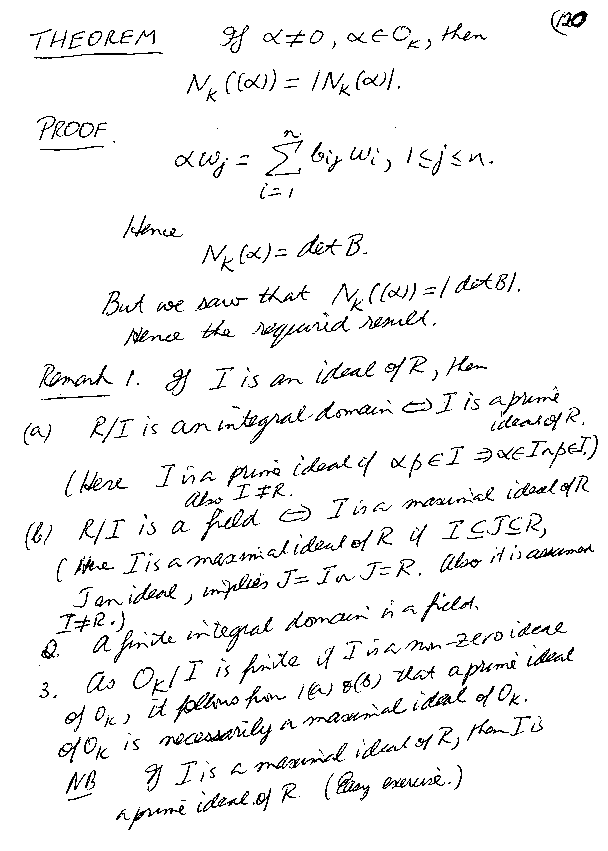 (120
THEOREM If α≠0, α∈O_K, then
N_K((α)) = |N_K(α)|.
PROOF.
αw_j = Σ_{i=1}^{n} b_{ij} w_i, 1≤j≤n.
Hence
N_K(α) = det B.
But we saw that N_K((α)) = |det B|.
Hence the required result.
Remark 1. If I is an ideal of R, then
(a) R/I is an integral domain ⇔ I is a prime
ideal of R.
(Here I is a prime ideal if αβ∈I ⇒ α∈I or β∈I.)
Also I≠R.
(b) R/I is a field ⇔ I is a maximal ideal of R
(Here I is a maximal ideal of R if I⊆J⊆R,
J an ideal, implies J=I or J=R. Also it is assumed
I≠R.)
2. A finite integral domain is a field.
3. As O_K/I is finite if I is a non-zero ideal
of O_K, it follows from 1(a) & (b) that a prime ideal
of O_K is necessarily a maximal ideal of O_K.
NB If I is a maximal ideal of R, then I is
a prime ideal of R. (Easy exercise.)